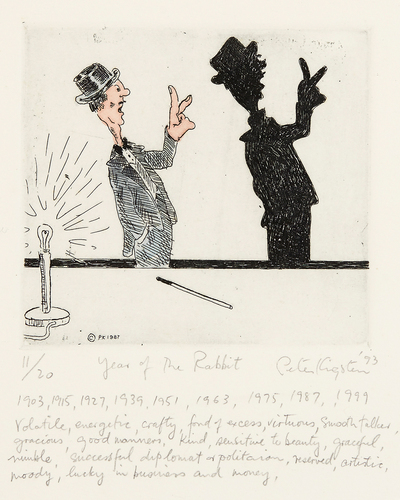 © PK 1987
11/20 Year of the Rabbit Peter Kingston '93
1903, 1915, 1927, 1939, 1951, 1963, 1975, 1987, 1999
Volatile, energetic, crafty, fond of excess, virtuous, smooth talker,
gracious, good manners, kind, sensitive to beauty, graceful,
nimble, successful diplomat or politician, reserved, artistic,
moody, lucky in business and money,